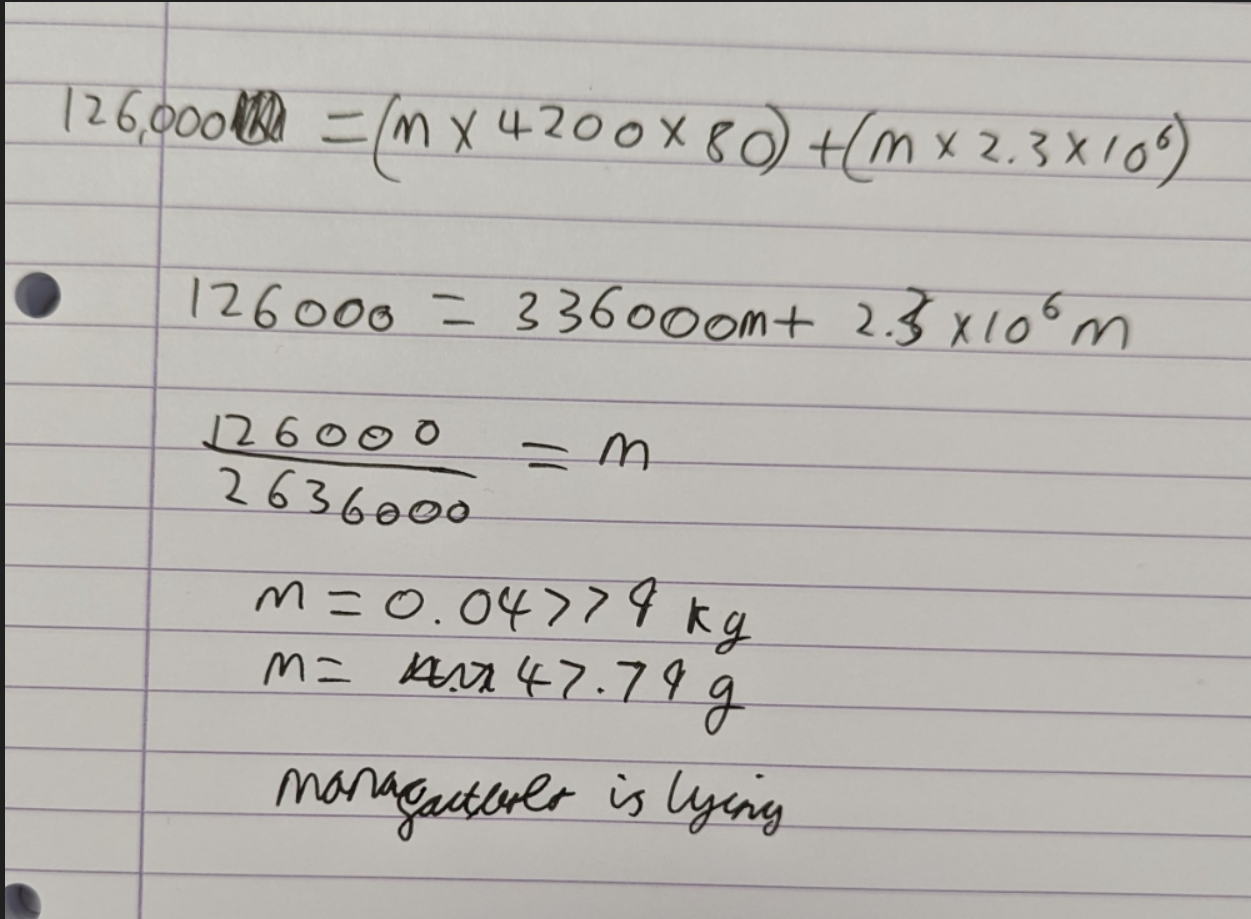 126,000 = (m × 4200 × 80) + (m × 2.3 × 10⁶)
126000 = 336000m + 2.3 × 10⁶ m
126000 / 2636000 = m
m = 0.04779 kg
m = 47.79 g
is lying